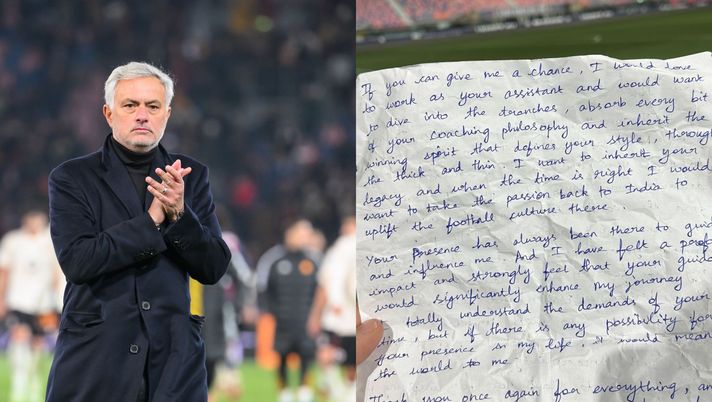 If you can give me a chance, I would love
to work as your assistant and would want
to dive into the trenches, absorb every bit
of your coaching philosophy and inherit the
winning spirit that defines your style, through
the thick and thin. I want to inherit your
legacy and when the time is right I would
want to take the passion back to India to
uplift the football culture there.
Your presence has always been there to guide
and influence me. And I have felt a
impact and strongly feel that your
would significantly enhance my journey
totally understand the demands of your
time, but if there is any possibility for
your presence in my life, it would mean
the world to me
you once again for everything, and